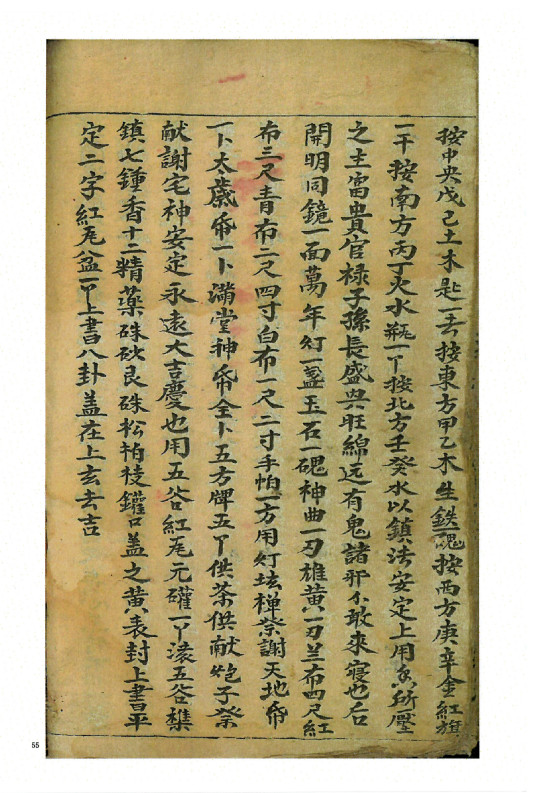 按中央戊己土木匙一去按東方甲乙木生鉄塊按西方庚辛金紅旗
一干按南方丙丁火水瓶一丫按北方壬癸水以鎮法安定上用 所壓
之主富貴官禄子孫長盛興旺綿远有鬼諸邪不敢來寝也后
開明同鏡一面萬年灯一盞玉石一磈神曲一刃雄黄一刃兰布四尺紅
布三尺青布二尺四寸白布一尺二寸手帕一方用灯 禅祭謝天地帋
一卜太歲帋一卜满堂神帋全卜五方牌五丫供茶供献 子祭
献謝宅神安定永遠大吉慶也用五谷紅瓦元礶一丫滚五谷
鎮七鍾香十二精藥硃砂艮硃松柏枝鑵口盖之黄表封上書昌平
定二字紅瓦八盆一丫上書八卦盖在上玄去吉
55